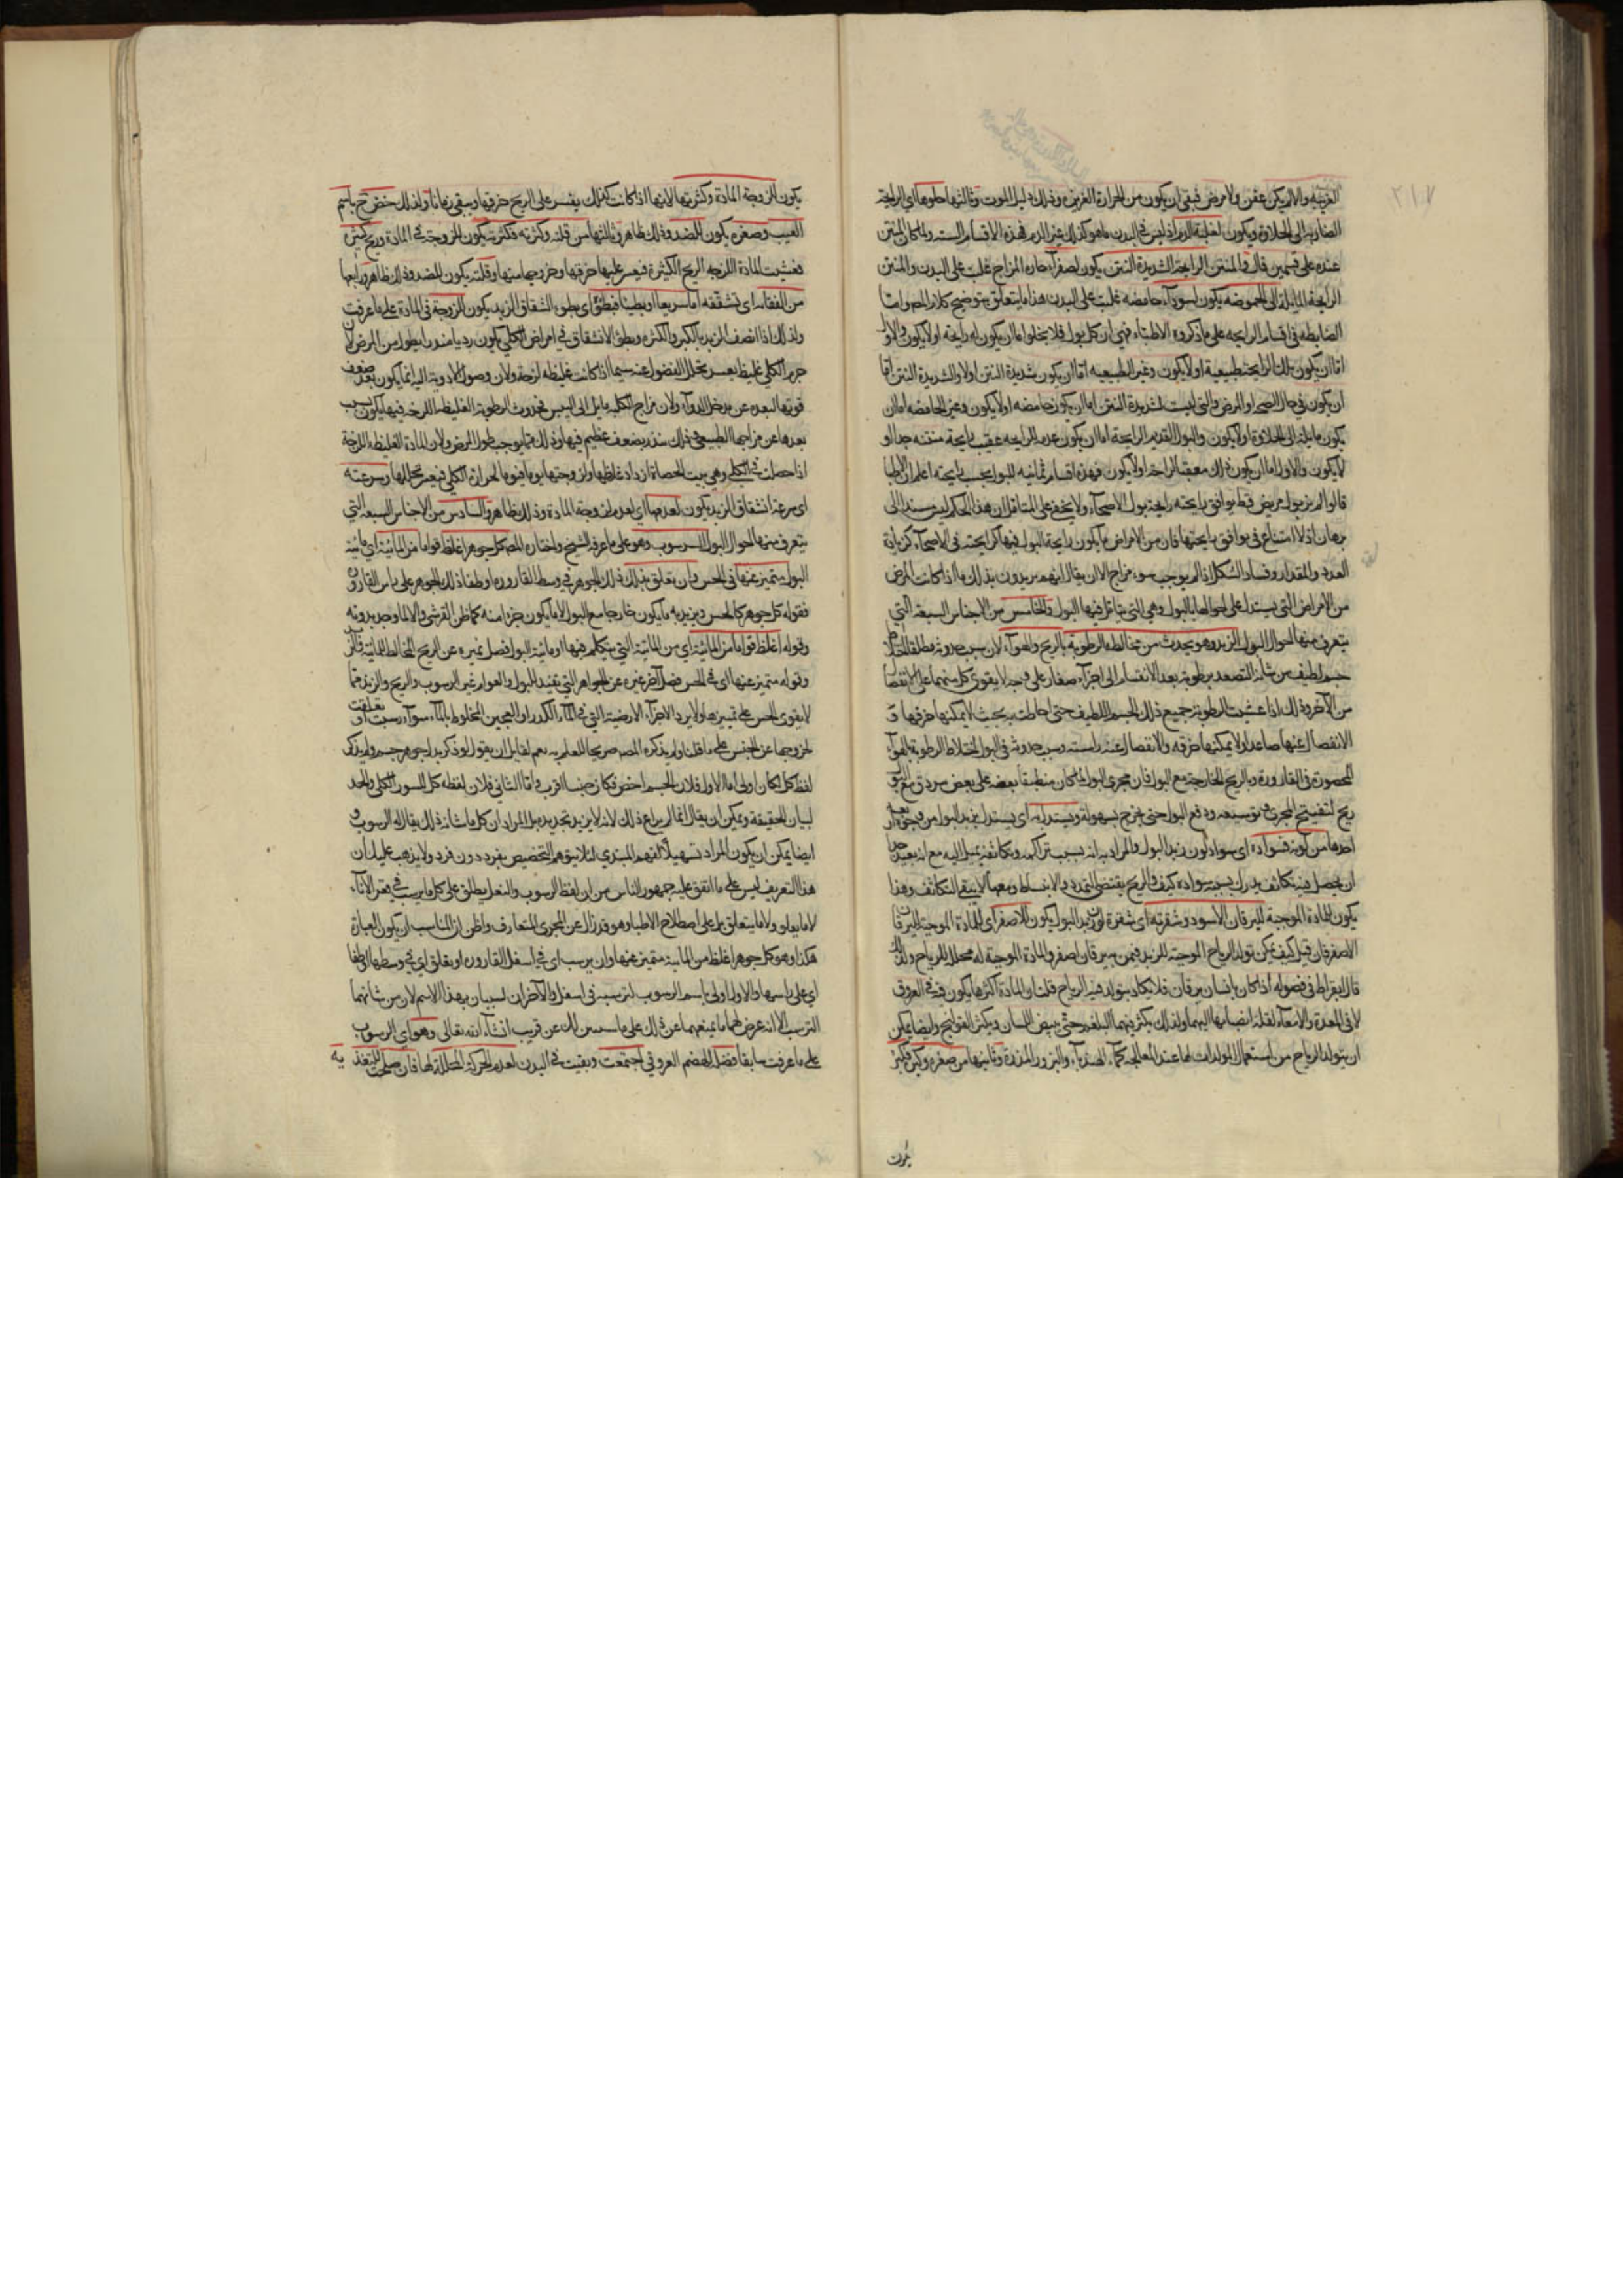 ٢١٧
الغريبة والا لم يكن عفن ولا مرض فبقى ان يكون من الحرارة الغريزية وذلك دليل الموت وثالثها حلوها اى الرايحة
الضاربة الى الحلاوة ويكون لغلبة الدم اذ ليس فى البدن ما هو كذلك غير الدم فهذه الاقسام الستة ولما كان المنتن
عنده على قسمين قال والمنتن الرايحة الشديدة النتن يكون لصفرآء حارة المزاج غلب على البدن والمنتن
الرايحة المايلة الى الحموضه يكون لسودآء حامضه غلبت على البدن هذا ما يتعلق بتوضيح كلام المص واما
الضابطه فى اقسام الرايحه على ما ذكروه الاطباء فهى ان كل بول فلا يخلو اما ان يكون له رايحه او لا يكون والاول
اما ان يكون تلك الرايحة طبيعية او لا يكون وغير الطبيعيه اما ان يكون شديدة النتن اولا والشديدة النتن اما
ان يكون فى حال الصحه او المرض والتى ليست شديدة النتن اما ان يكون حامضه او لا يكون وغير الحامضه اما ان
يكون مايلة الى الحلاوة او لا يكون والبول العديم الرايحة اما ان يكون عدم الرايحه عقيب رايحة منتنه جدا او
لا يكون والاول اما ان يكون ذلك معقبا لراحة او لا يكون فهذه اقسام ثمانيه للبول بحسب رايحته اعلم ان الاطبا
قالوا لم ير بول مريض قط يوافق رايحته رايحة بول الاصحآء ولا يخفى على المتامل ان هذا الحكم ليس مستندا الى
برهان اذ لا امتناع فى توافق رايحتها فان من الامراض ما يكون رايحة البول فيها كرايحته فى الاصحآء كزيادة
العدد والمقدار وفساد الشكل اذا لم يوجب سوء مزاج الا ان يقال انهم يريدون بذلك ما اذا كانت المرض
من الامراض التى يستدل على احوالها بالبول وهى التى يتاثر فيها البول والخامس من الاجناس السبعة التى
يتعرف منها احوال البول الزبد وهو يحدث من مخالطة الرطوبة بالريح والهوآء لان سبب حدوثه مطلقا اختلاط
جسم لطيف من شانه التصعد برطوبة بعد الانقسام الى اجزآء صغار على وجه لا يقوى كل منهما على الانفصال
من الآخر وذلك اذا غشيت الرطوبة جميع ذلك الجسم اللطيف حتى احاطت به بحيث لا يمكنها خرقها و
الانفصال عنها صاعدا ولا يمكنها خرقه والانفصال عنه راسبه وسبب حدوثه فى البول اختلاط الرطوبة بالهوآء
المحصورة فى القارورة وبالريح الخارجة مع البول فان مجرى البول لما كان منطبقا بعضه على بعض
ريح لتفسيح المجرى وتوسيعه ودفع البول حتى يخرج بسهولة ويستدل به اى يستدل بزبد البول من وجوه اربعة
احدها من لونه فسواده اى سواد لون زبد البول والمراد به انه بسبب تراكمه وتكاثفه يميل اليه مع انه بعيد من
ان يحصل فيه تكاثف يدرك بسببه سواده كيف والريح يقتضى التمدد والانبساط ومعهما لا يبقى التكاثف وهذا
يكون للمادة الموجبة لليرقان الاسود وشقرته اى شقرة لون زبد البول يكون للاصفر اى للمادة الموجبة لليرقان
الاصفر فان قيل كيف يمكن تولد الرياح الموجبة للزبد فيمن به يرقان اصفر والمادة الموجبة له محللة للرياح ولذلك
قال بقراط فى فصوله اذا كان بانسان يرقان فلا يكاد يتولد فيه الرياح قلت والمادة اكثرها يكون فيه فى العروق
لا فى المعدة والامعآء لقلة انصبابها اليهما ولذلك يكثر فيهما البلغم حتى يبيض اللسان ويكثر القولنج وايضا يمكن
ان يتولد الرياح من استعمال المولدات لها عند المعالجه كمآء الهندبآء والبزور المدرة وثانيها من صغره وكبره فكبره
يكون
يكون للزوجة المادة وكثرتها لانها اذا كانت كذلك يعسر على الريح خرقها ويبقى زمانا ولذلك خص ح باسم
العبب وصغره يكون للضد وذلك ظاهر وثالثها من قلته وكثرته فكثرته يكون للزوجة فى المادة وريح كثيرة
فغشيت المادة اللزجه الريح الكثيرة فيعسر عليها خرقها وخروجها منها وقلته يكون للضد وذلك ظاهر ورابعها
من انفقائه اى تشققه اما سريعا او بطيئا فبطؤه اى بطوء انشقاق الزبد يكون للزوجة فى المادة على ما عرفت
ولذلك اذا اتصف الزبد بالكبر والكثرة وبطؤ الانشقاق فى امراض الكلى يكون رديا منذرا بطول من المرض لان
جرم الكلى غليظ يعسر تحلل الفضول عنه سيما اذا كانت غليظه لزجة ولان وصول الادوية اليه انما يكون بعد ضعف
قوتها لبعده عن مدخل الدوآء ولان مزاج الكليه مايل الى اليبس فحدوث الرطوبة الغليظه اللزجه فيها يكون بسبب
بعدها عن مزاجها الطبيعى وذلك منذر بضعف عظيم فيها وذلك مما يوجب طول المرض ولان المادة الغليظه اللزجة
اذا حصلت فى الكلى وهى بيت الحصاة ازداد غلظها ولزوجتها يوما فيوما لحرارة الكلى فيعسر تحللها وسرعته
اى سرعة انشقاق الزبد يكون لعدمها اى لعدم لزوجة المادة وذلك ظاهر والسادس من الاجناس السبعه التى
يتعرف منها احوال البول الرسوب وهو على ما عرفه الشيخ واختاره المص كل جوهر اغلظ قواما من المائية اى مائية
البول متميز عنها فى الحس وان تعلق بذلك ذلك الجوهر فى وسط القارورة او طفا ذلك الجوهر على راس القارورة
فقوله كل جوهر كالجنس ويريد به ما يكون خارجا مع البول لا ما يكون جزءا منه كما ظن القرشى والا لما وجد بدونه
وقوله اغلظ قواما من المائية اى من المائية التى يتكلم فيها او مائية البول فصل يميزه عن الريح المخالط للمائية
وقوله متميز عنها اى فى الحس فصل آخر يميزه عن الجواهر التى تفيد البول والقوام غير الرسوب والريح والزبد مما
لا يقوى الحس على تمييزها ولا يرد الاجزآء الارضية التى فى المآء الكدر او العجين المخلوط بالمآء سوآء رسبت او تعلقت
لخروجها عن الجنس على ما قلنا ولم يذكره المص صريحا للعلم به نعم لقايل ان يقول لو ذكر بدل جوهر جسم ولم يذكر
لفظ كل لكان اولى اما الاول فلان الجسم اخص فكان جنسا اقرب واما الثانى فلان لفظه كل للسور الكلى والحد
لبيان الحقيقة ويمكن ان يقال انما لم يراع ذلك لانه لا يريد تحديده بل المراد ان كل ما شانه ذلك يقال له الرسوب و
ايضا يمكن ان يكون المراد تسهيلا لفهم المبتدى لئلا يتوهم التخصيص بفرد دون فرد ولا يذهب عليك ان
هذا التعريف ليس على ما اتفق عليه جمهور الناس من ان لفظ الرسوب والثفل يطلق على كل ما يرسب فى قعر الانآء
لا ما يعلو ولا ما يتعلق بل على اصطلاح الاطبا وهو قد زال عن المجرى المتعارف واظن ان المناسب ان يكون العبارة
هكذا وهو كل جوهر اغلظ من المائية متميز عنها وان يرسب اى فى اسفل القارورة او تعلق اى فى وسطها او طفا
اى على راسها والاول اولى باسم الرسوب لترسبه فى اسفل والآخران لسبيان بهذا الاسم لان من شانهما
الترسب الا انه عرض لهما ما يمنعهما عن ذلك على ما سيبين لك عن قريب انشآء الله تعالى وهو اى الرسوب
على ما عرفت سابقا فضل الهضم العروقى اجتمعت وبقيت فى البدن لعدم الحركة المحللة لها فان صلحت لتغذيه